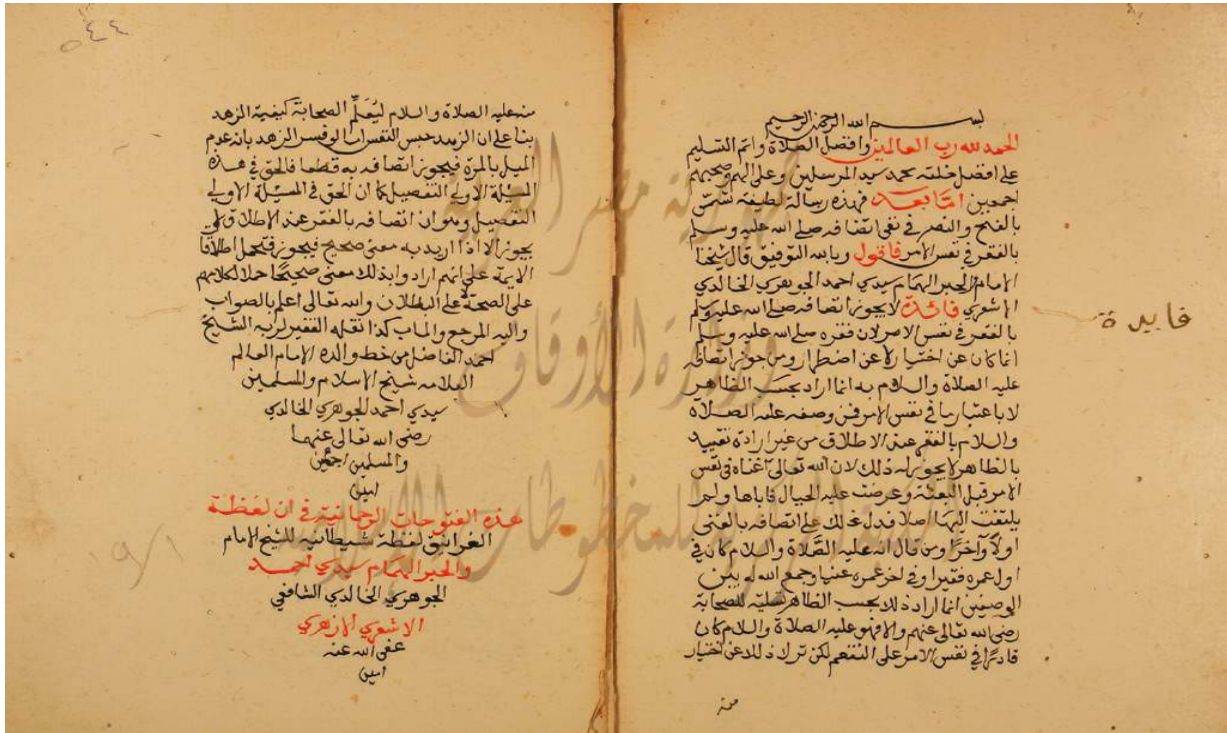 بسم الله الرحمن الرحيم
الحمد لله رب العالمين وافضل الصلاة واتم التسليم
على افضل خلقه محمد سيد المرسلين وعلى الهم وصحبهم
اجمعين اما بعد فهذه رسالة لطيفة تسمى
بالفتح والنصر في نفى اتصافه صلى الله عليه وسلم
بالفقر في نفس الامر فاقول وبالله التوفيق قال شيخنا
الامام الحبر الهمام سيدي احمد الجوهري الخالدي
الاشعري فائدة لا يجوز اتصافه صلى الله عليه وسلم
بالفقر في نفس الامر لان فقره صلى الله عليه وسلم
انما كان عن اختيار لا عن اضطرار ومن جوز اتصافه
عليه الصلاة والسلام به انما اراد بحسب الظاهر
لا باعتبار ما في نفس الامر فمن وصفه عليه الصلاة
والسلام بالفقر عند الاطلاق من غير ارادة تقييد
بالظاهر لا يجوز له ذلك لان الله تعالى اغناه في نفس
الامر قبل البعثة وعرضت عليه الجبال فاباها ولم
يلتفت اليها اصلا فدل ذلك على اتصافه بالغنى
اولا واخرا ومن قال انه عليه الصلاة والسلام كان في
اول عمره فقيرا وفي اخر عمره غنيا وجمع الله له بين
الوصفين انما اراد ذلك بحسب الظاهر تسلية للصحابة
رضي الله تعالى عنهم والا فهو عليه الصلاة والسلام كان
قادرا في نفس الامر على التنعم لكن ترك ذلك عن اختيار
منه
فايدة
٥٤٤
منه عليه الصلاة والسلام ليُعَلِّم الصحابة كيفية الزهد
بنا على ان الزهد حبس النفس اما لو فسر الزهد بانه عدم
الميل بالمرة فيجوز اتصافه به قطعا فالحق في هذه
المسيلة الاولى التفصيل كما ان الحق في المسيلة الاولى
التفصيل وهو ان اتصافه بالفقر عند الاطلاق لا
يجوز الا اذا اريد به معنى صحيح فيجوز فتحمل اطلاقات
الايمة على انهم ارادوا بذلك معنى صحيحا حملا لكلامهم
على الصحة لا على البطلان والله تعالى اعلم بالصواب
واليه المرجع والماب كذا نقله الفقير لربه الشيخ
احمد الفاضل من خط والده الامام العالم
العلامه شيخ الاسلام والمسلمين
سيدي احمد الجوهري الخالدي
رضى الله تعالى عنهما
والمسلمين اجمعين
امين
هذه الفتوحات الرحمانية في ان لفظة
الغرانق لفظة شيطانيه للشيخ الامام
والحبر الهمام سيدي احمد
الجوهري الخالدي الشافعي
الاشعري الازهري
عفى الله عنه
امين
جمهورية مصر العربية
وزارة الأوقاف
المكتبة المركزية للمخطوطات الإسلامية